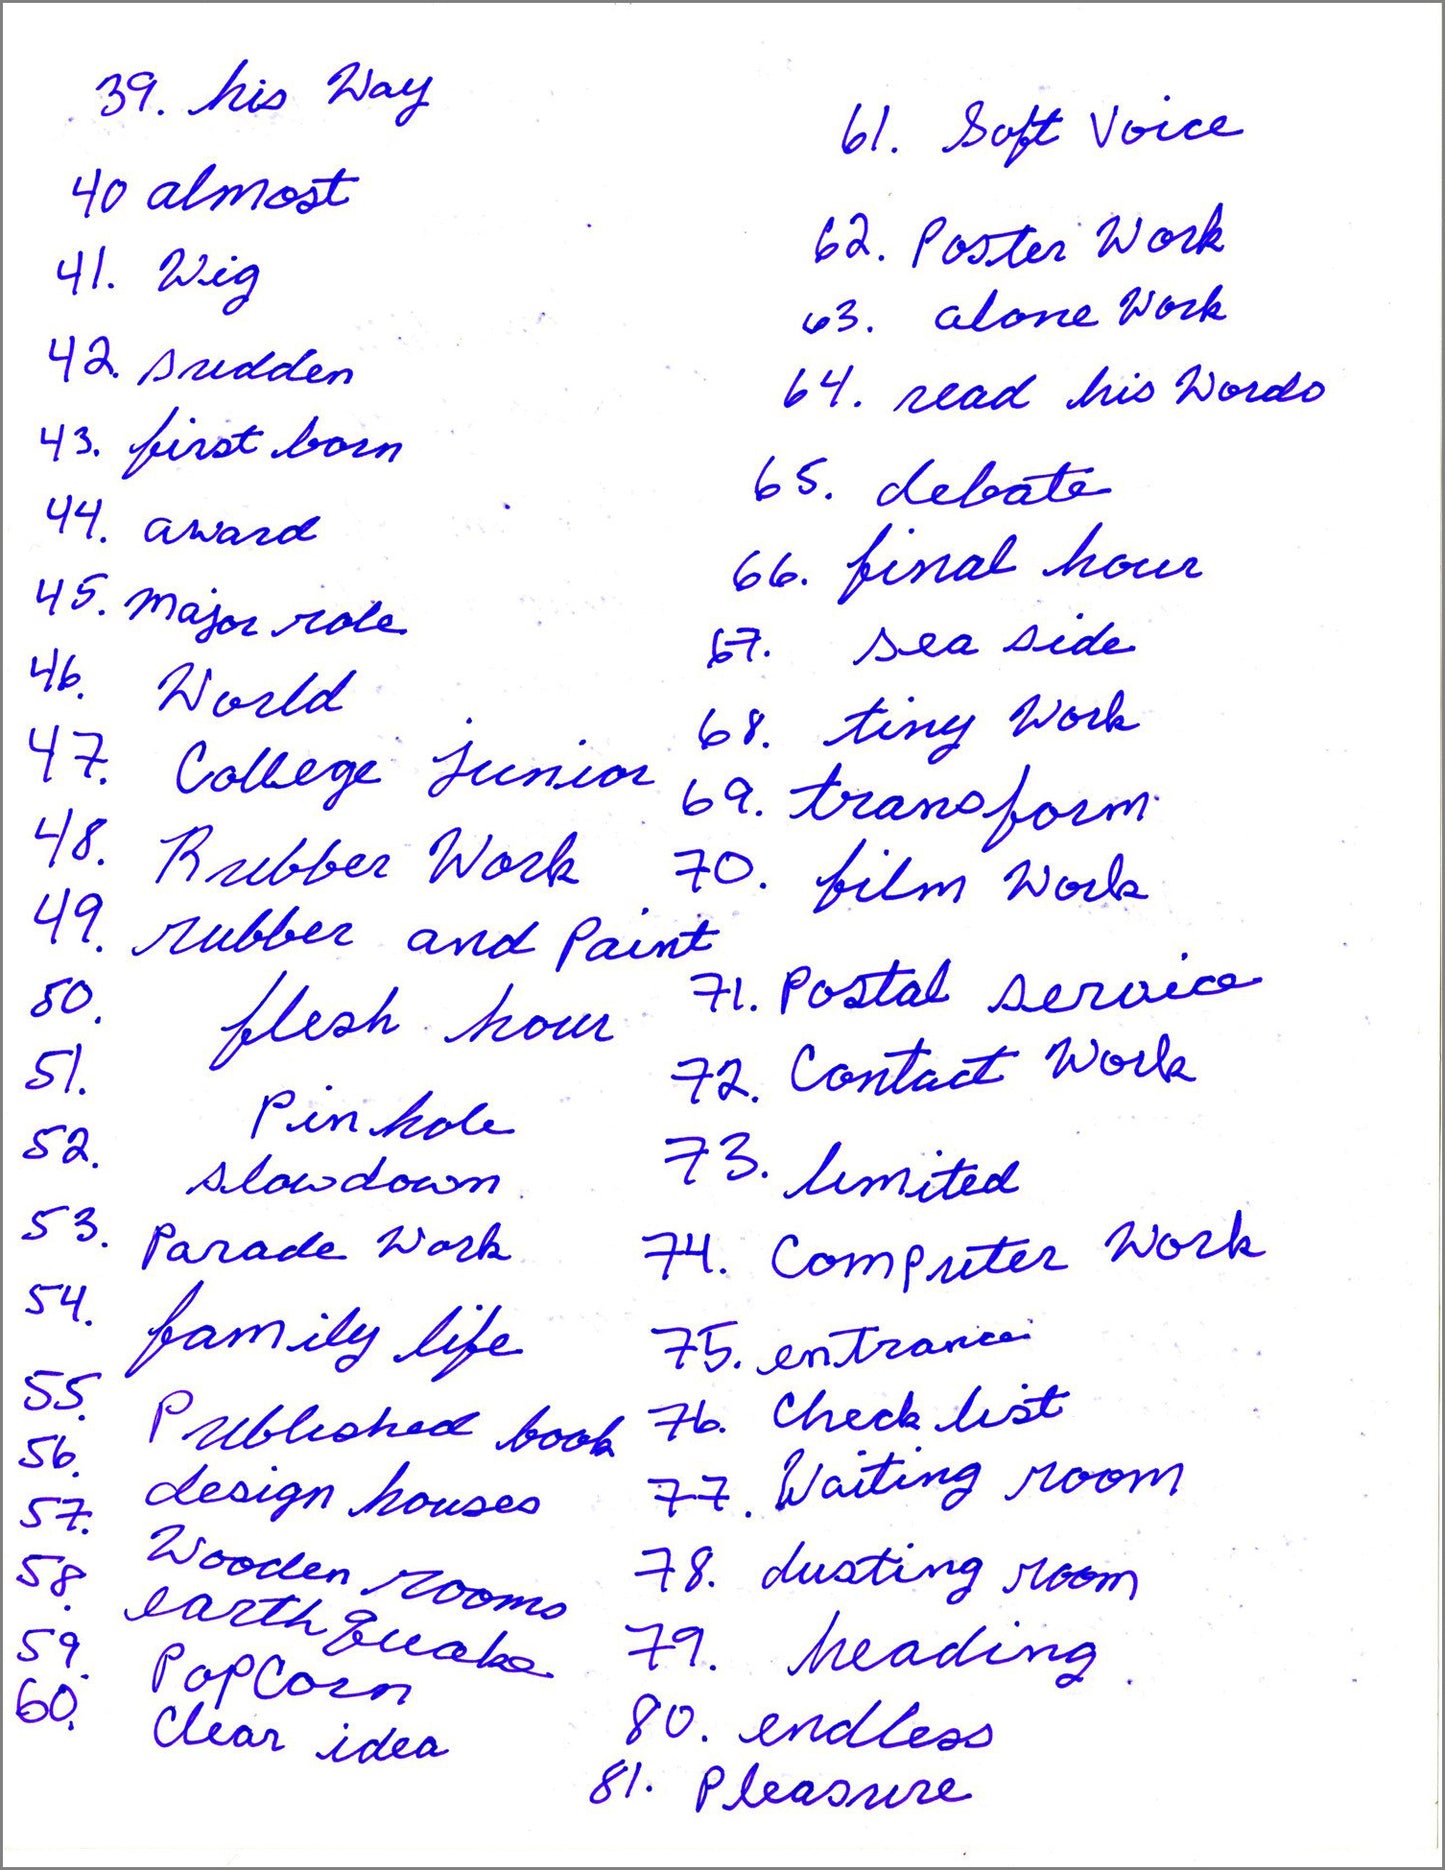 39. his Way
40 almost
41. Wig
42. sudden
43. first born
44. award
45. Major role
46. World
47. College junior
48. Rubber Work
49. rubber and Paint
50. flesh hour
51. Pin hole
52. slowdown
53. Parade Work
54. family life
55. Published book
56. design houses
57. Wooden rooms
58. earth quake
59. PopCorn
60. Clear idea
61. Soft Voice
62. Poster Work
63. alone Work
64. read his Words
65. debate
66. final hour
67. sea side
68. tiny Work
69. transform
70. film Work
71. Postal service
72. Contact Work
73. limited
74. Computer Work
75. entrance
76. Check list
77. Waiting room
78. dusting room
79. heading
80. endless
81. Pleasure